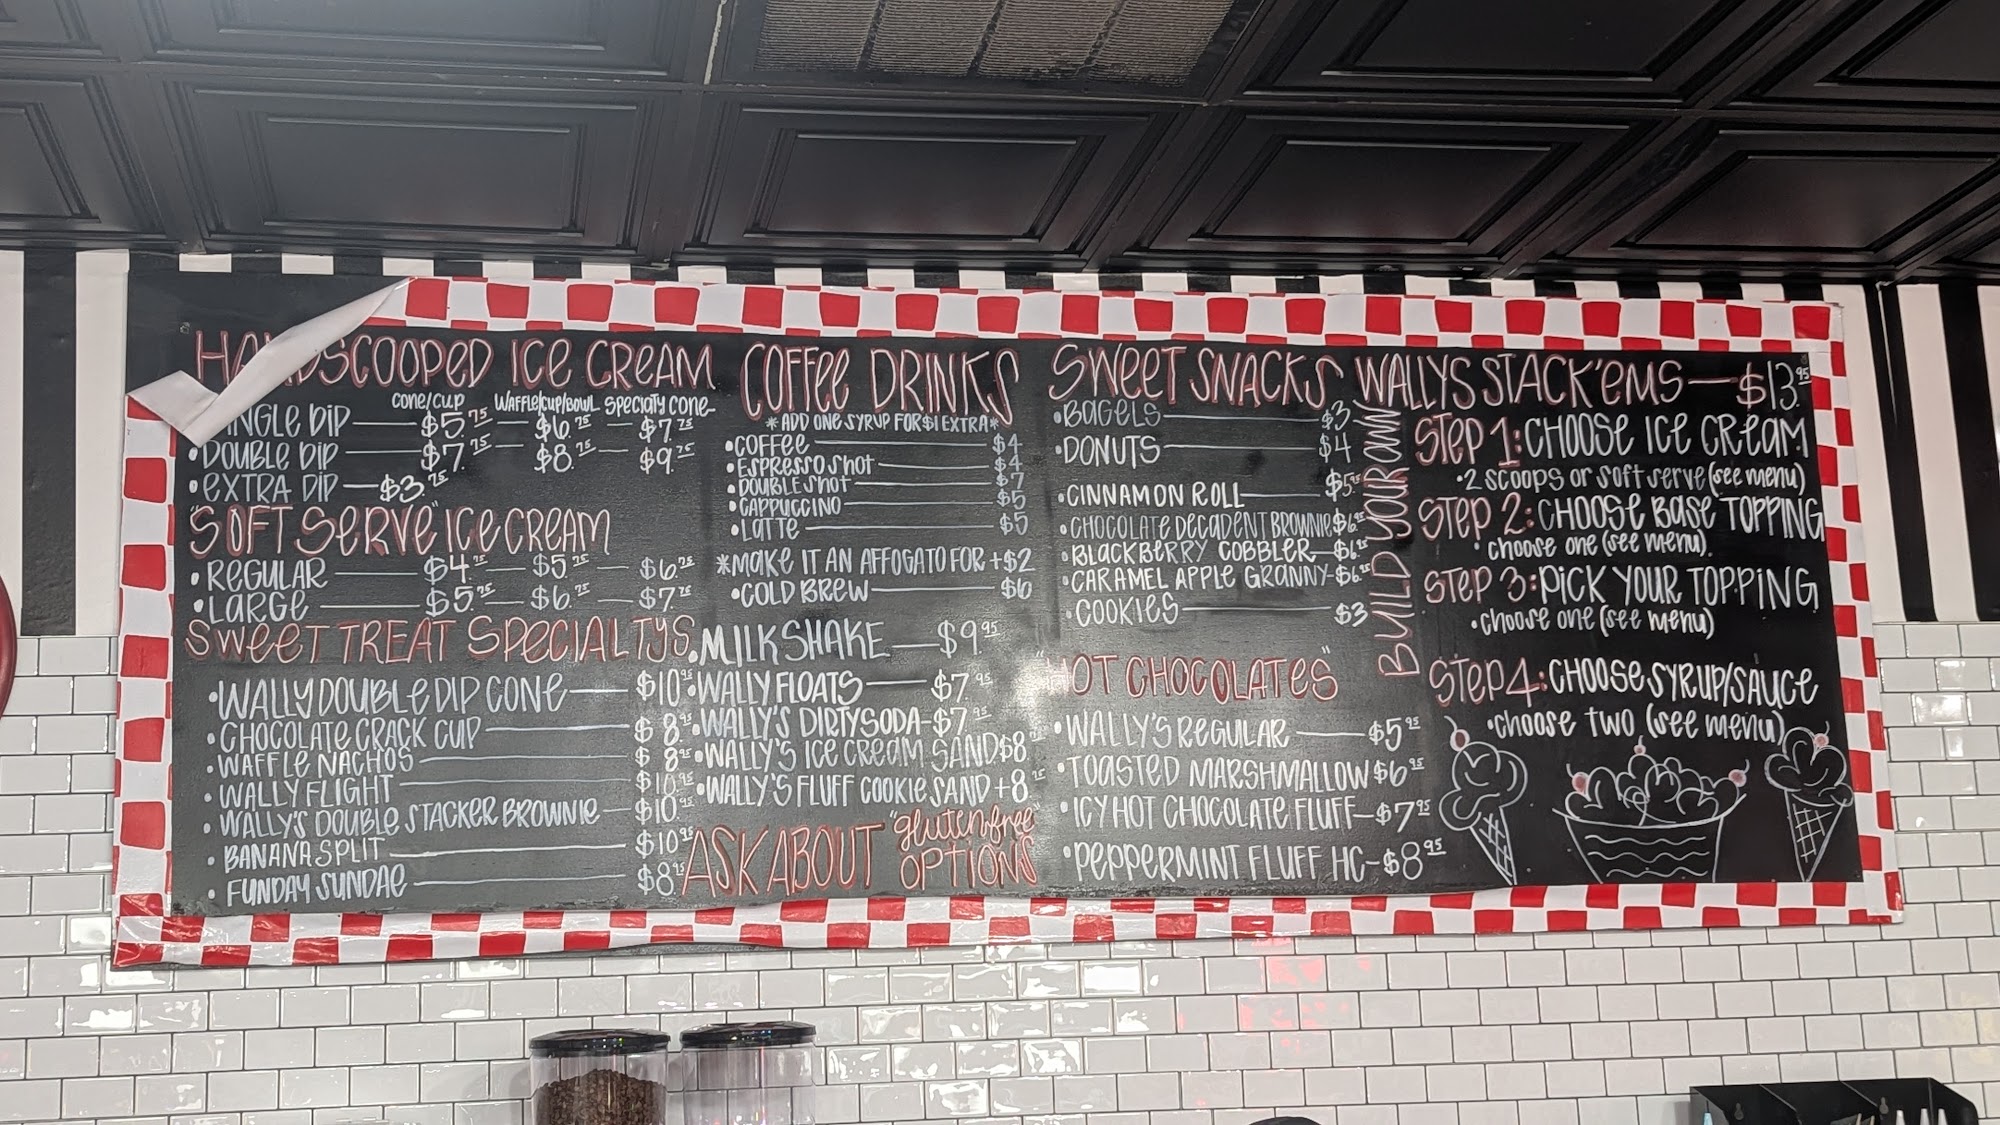 HANDSCOOPED ICE CREAM
CONE/CUP WAFFLE/CUP/BOWL SPECIALTY CONE
INGLE DIP — $5.75 — $6.75 — $7.75
•DOUBLE DIP — $7.75 — $8.75 — $9.75
•EXTRA DIP — $3.75
"SOFT SERVE" ICE CREAM
•REGULAR — $4.75 — $5.75 — $6.75
•LARGE — $5.75 — $6.75 — $7.75
SWEET TREAT SPECIALTYS
•WALLY DOUBLE DIP CONE — $10.95
•CHOCOLATE CRACK CUP — $8.95
•WAFFLE NACHOS — $8.95
•WALLY FLIGHT — $10.95
•WALLY'S DOUBLE STACKER BROWNIE — $10.95
•BANANA SPLIT — $10.95
•FUNDAY SUNDAE — $8.95
COFFEE DRINKS
*ADD ONE SYRUP FOR $1 EXTRA*
•COFFEE — $4
•ESPRESSO SHOT — $4
•DOUBLE SHOT — $7
•CAPPUCCINO — $5
•LATTE — $5
*MAKE IT AN AFFOGATO FOR +$2
•COLD BREW — $6
•MILKSHAKE — $9.95
•WALLY FLOATS — $7.95
•WALLY'S DIRTY SODA - $7.95
•WALLY'S ICE CREAM SAND $8
•WALLY'S FLUFF COOKIE SAND + 8
ASK ABOUT "gluten-free" OPTIONS
SWEET SNACKS
•BAGELS — $3
•DONUTS — $4
•CINNAMON ROLL — $5.95
•CHOCOLATE DECADENT BROWNIE $6.95
•BLACKBERRY COBBLER — $6.95
•CARAMEL APPLE GRANNY - $6.95
•COOKIES — $3
"HOT CHOCOLATES"
•WALLY'S REGULAR — $5.95
•TOASTED MARSHMALLOW $6.95
•ICY HOT CHOCOLATE FLUFF — $7.95
•PEPPERMINT FLUFF HC - $8.95
WALLYS STACK'EMS — $13.95
BUILD YOUR OWN
STEP 1: CHOOSE ICE CREAM
•2 SCOOPS OR SOFT SERVE (see menu)
STEP 2: CHOOSE BASE TOPPING
•choose one (see menu).
STEP 3: PICK YOUR TOPPING
•choose one (see menu)
STEP 4: CHOOSE SYRUP/SAUCE
•choose two (see menu)